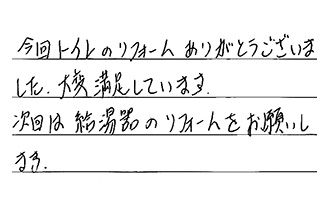 今回トイレのリフォームありがとうございま
した.大変満足しています.
次回は給湯器のリフォームをお願いし
ます.